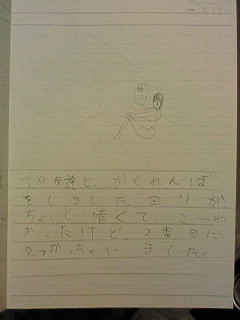 今日友達と、かくれんぼ
をしました。回りが
ちょっと暗くて、こーわ
かったけど、2番目に
見つかっちゃいました。